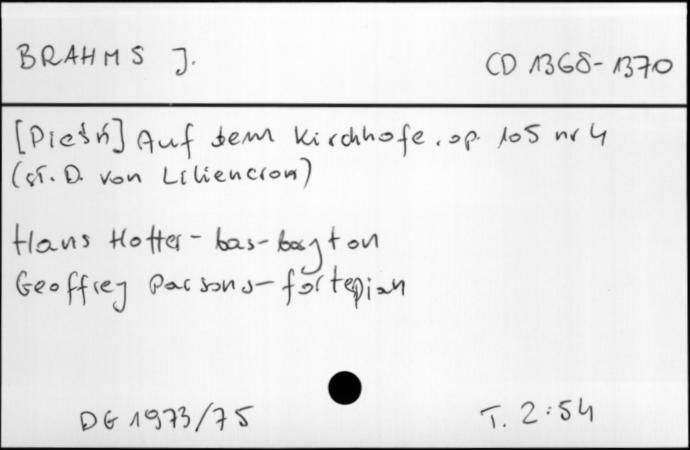 BRAHMS J. CD 1368-1370
[Pieśń] Auf dem Kirchhofe. op. 105 nr 4
(sł. D. von Liliencron)
Hans Hotter - bas-baryton
Geoffrey Parsons - fortepian
DG 1973/75 T. 2:54